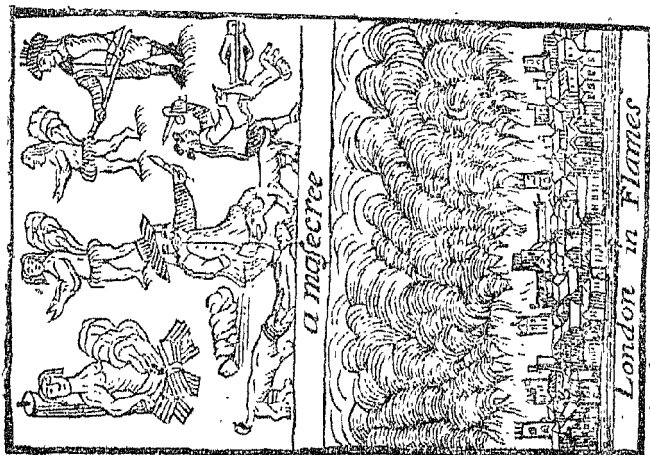 a maſecree
London in Flames